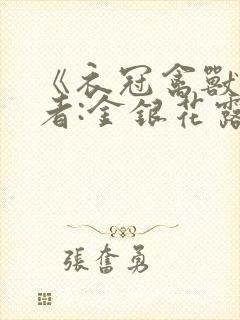 《衣冠禽獸
者:金銀花露
張奮勇